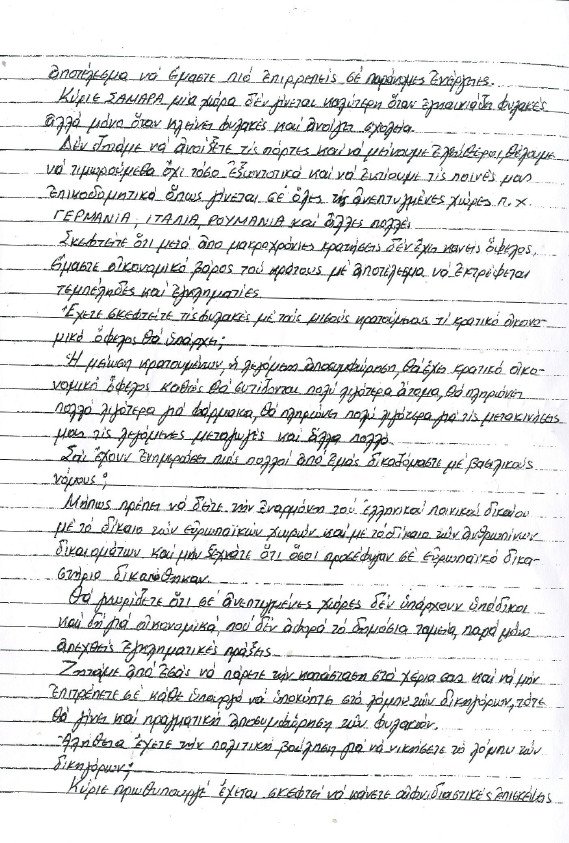 ἀποτέλεσμα νά εἴμαστε πιό ἐπιρρεπείς σέ παράνομες ἐνέργειες.
Κύριε ΣΑΜΑΡΑ μία χώρα δέν γίνεται καλύτερη ὅταν ἐγκαινιάζει φυλακές
ἀλλά μόνο ὅταν κλείνει φυλακές καί ἀνοίγει σχολεία.
Δέν ζητᾶμε νά ἀνοίξετε τίς πόρτες καί νά μείνουμε ἐλεύθεροι, θέλουμε
νά τιμωρούμεθα ὄχι τόσο ἐξοντωτικά καί νά ἐκτίουμε τίς ποινές μας
ἐποικοδομητικά ὅπως γίνεται σέ ὅλες τίς ἀνεπτυγμένες χώρες π.χ.
ΓΕΡΜΑΝΙΑ, ΙΤΑΛΙΑ, ΡΟΥΜΑΝΙΑ καί ἄλλες πολλές
Σκεφτεῖτε ὅτι μετά ἀπο μακροχρόνιες κρατήσεις δέν ἔχει κανείς ὄφελος,
εἴμαστε οἰκονομικό βάρος τοῦ κράτους μέ ἀποτέλεσμα νά ἐκτρέφεται
τεμπέληδες καί ἐγκληματίες
Ἔχετε σκεφτεῖτε τίς φυλακές μέ τούς μισούς κρατούμενους τί κρατικό οἰκονο-
μικό ὄφελος θά ὑπάρχει;
Ἡ μείωση κρατουμένων, ἡ λεγόμενη ἀποσυμφόρηση, θά ἔχει κρατικό οἰκο-
νομική ὄφελος καθώς θά σιτίζονται πολύ λιγότερα ἄτομα, θά πληρώνει
πολλά λιγότερα γιά φάρμακα, θά πληρώνει πολύ λιγότερα γιά τίς μετακινήσεις
μας τίς λεγόμενες μεταγωγές καί ἄλλα πολλά.
Σᾶς ἔχουν ἐνημερώσει πώς πολλοί ἀπό ἐμᾶς δικαζόμαστε μέ βασιλικούς
νόμους;
Μήπως πρέπει νά δεῖτε τήν ἐναρμόνιση τοῦ ἑλληνικοῦ ποινικοῦ δικαίου
μέ τό δίκαιο τῶν εὐρωπαϊκῶν χωρῶν καί μέ τό δίκαιο τῶν ἀνθρωπίνων
δικαιωμάτων καί μήν ξεχνᾶτε ὅτι ὅσοι προσέφυγαν σέ εὐρωπαϊκό δικα-
στήριο δικαιώθηκαν.
Θά γνωρίζετε ὅτι σέ ἀνεπτυγμένες χῶρες δέν ὑπάρχουν ὑπόδικοι
καί δή γιά οἰκονομικά, πού δέν ἀφορᾶ τά δημόσια ταμεία, παρά μόνο
ἀπεχθείς ἐγκληματικές πράξεις.
Ζητᾶμε ἀπό ἐσᾶς νά πάρετε τήν κατάσταση στά χέρια σας καί νά μήν
ἐπιτρέπετε σέ κάθε ὑπουργό νά ὑποκύπτει στό λόμπυ τῶν δικηγόρων, τότε
θά γίνει καί πραγματική ἀποσυμφόρηση τῶν φυλακῶν.
Ἀλήθεια ἔχετε τήν πολιτική βούληση γιά νά νικήσετε τό λόμπυ τῶν
δικηγόρων;
Κύριε πρωθυπουργέ ἔχεται σκεφτεῖ νά κάνετε αἰφνιδιαστικές ἐπισκέψεις